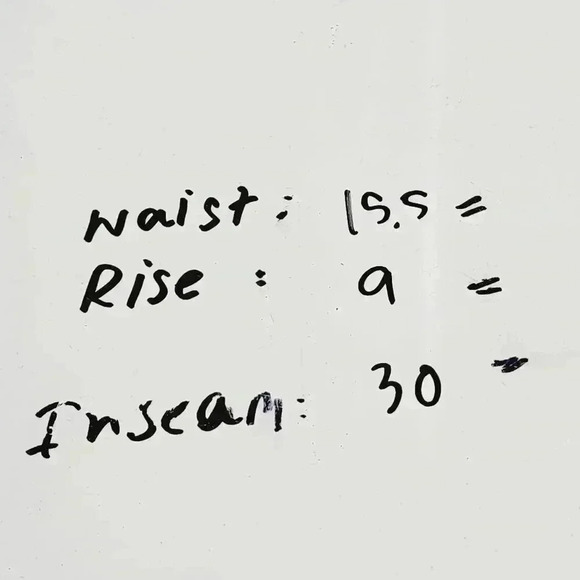 Waist: 15.5 =
Rise : 9 =
Inseam: 30 =